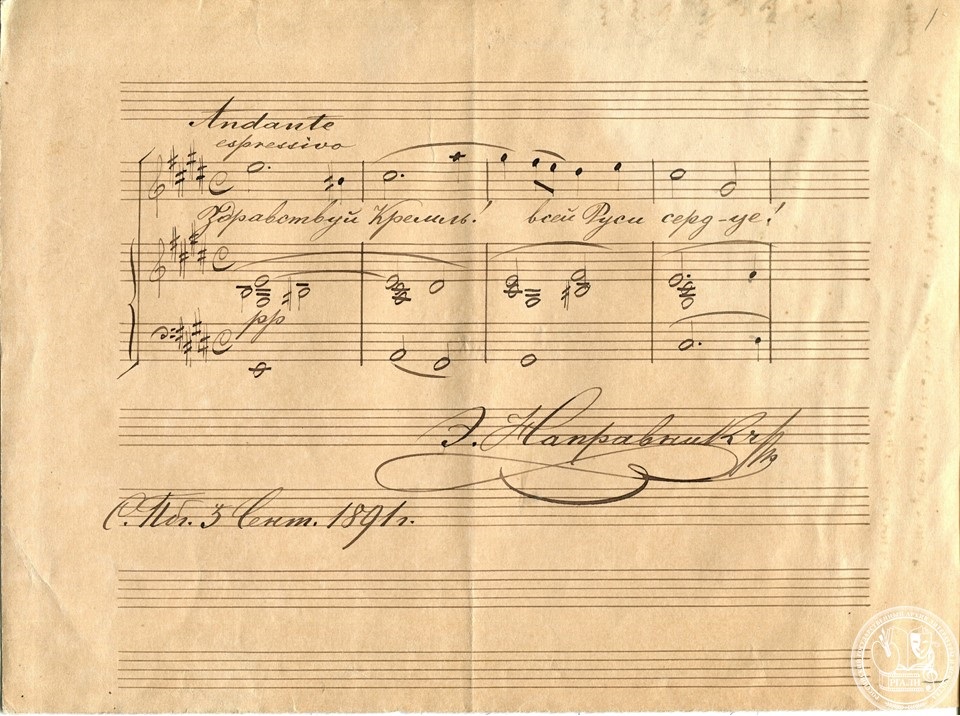 1
Andante
espressivo
Здравствуй Кремль! всей Руси серд-це!
pp
Э. Направникъ
С. Пбг. 3 Сент. 1891 г.
РГАЛИ